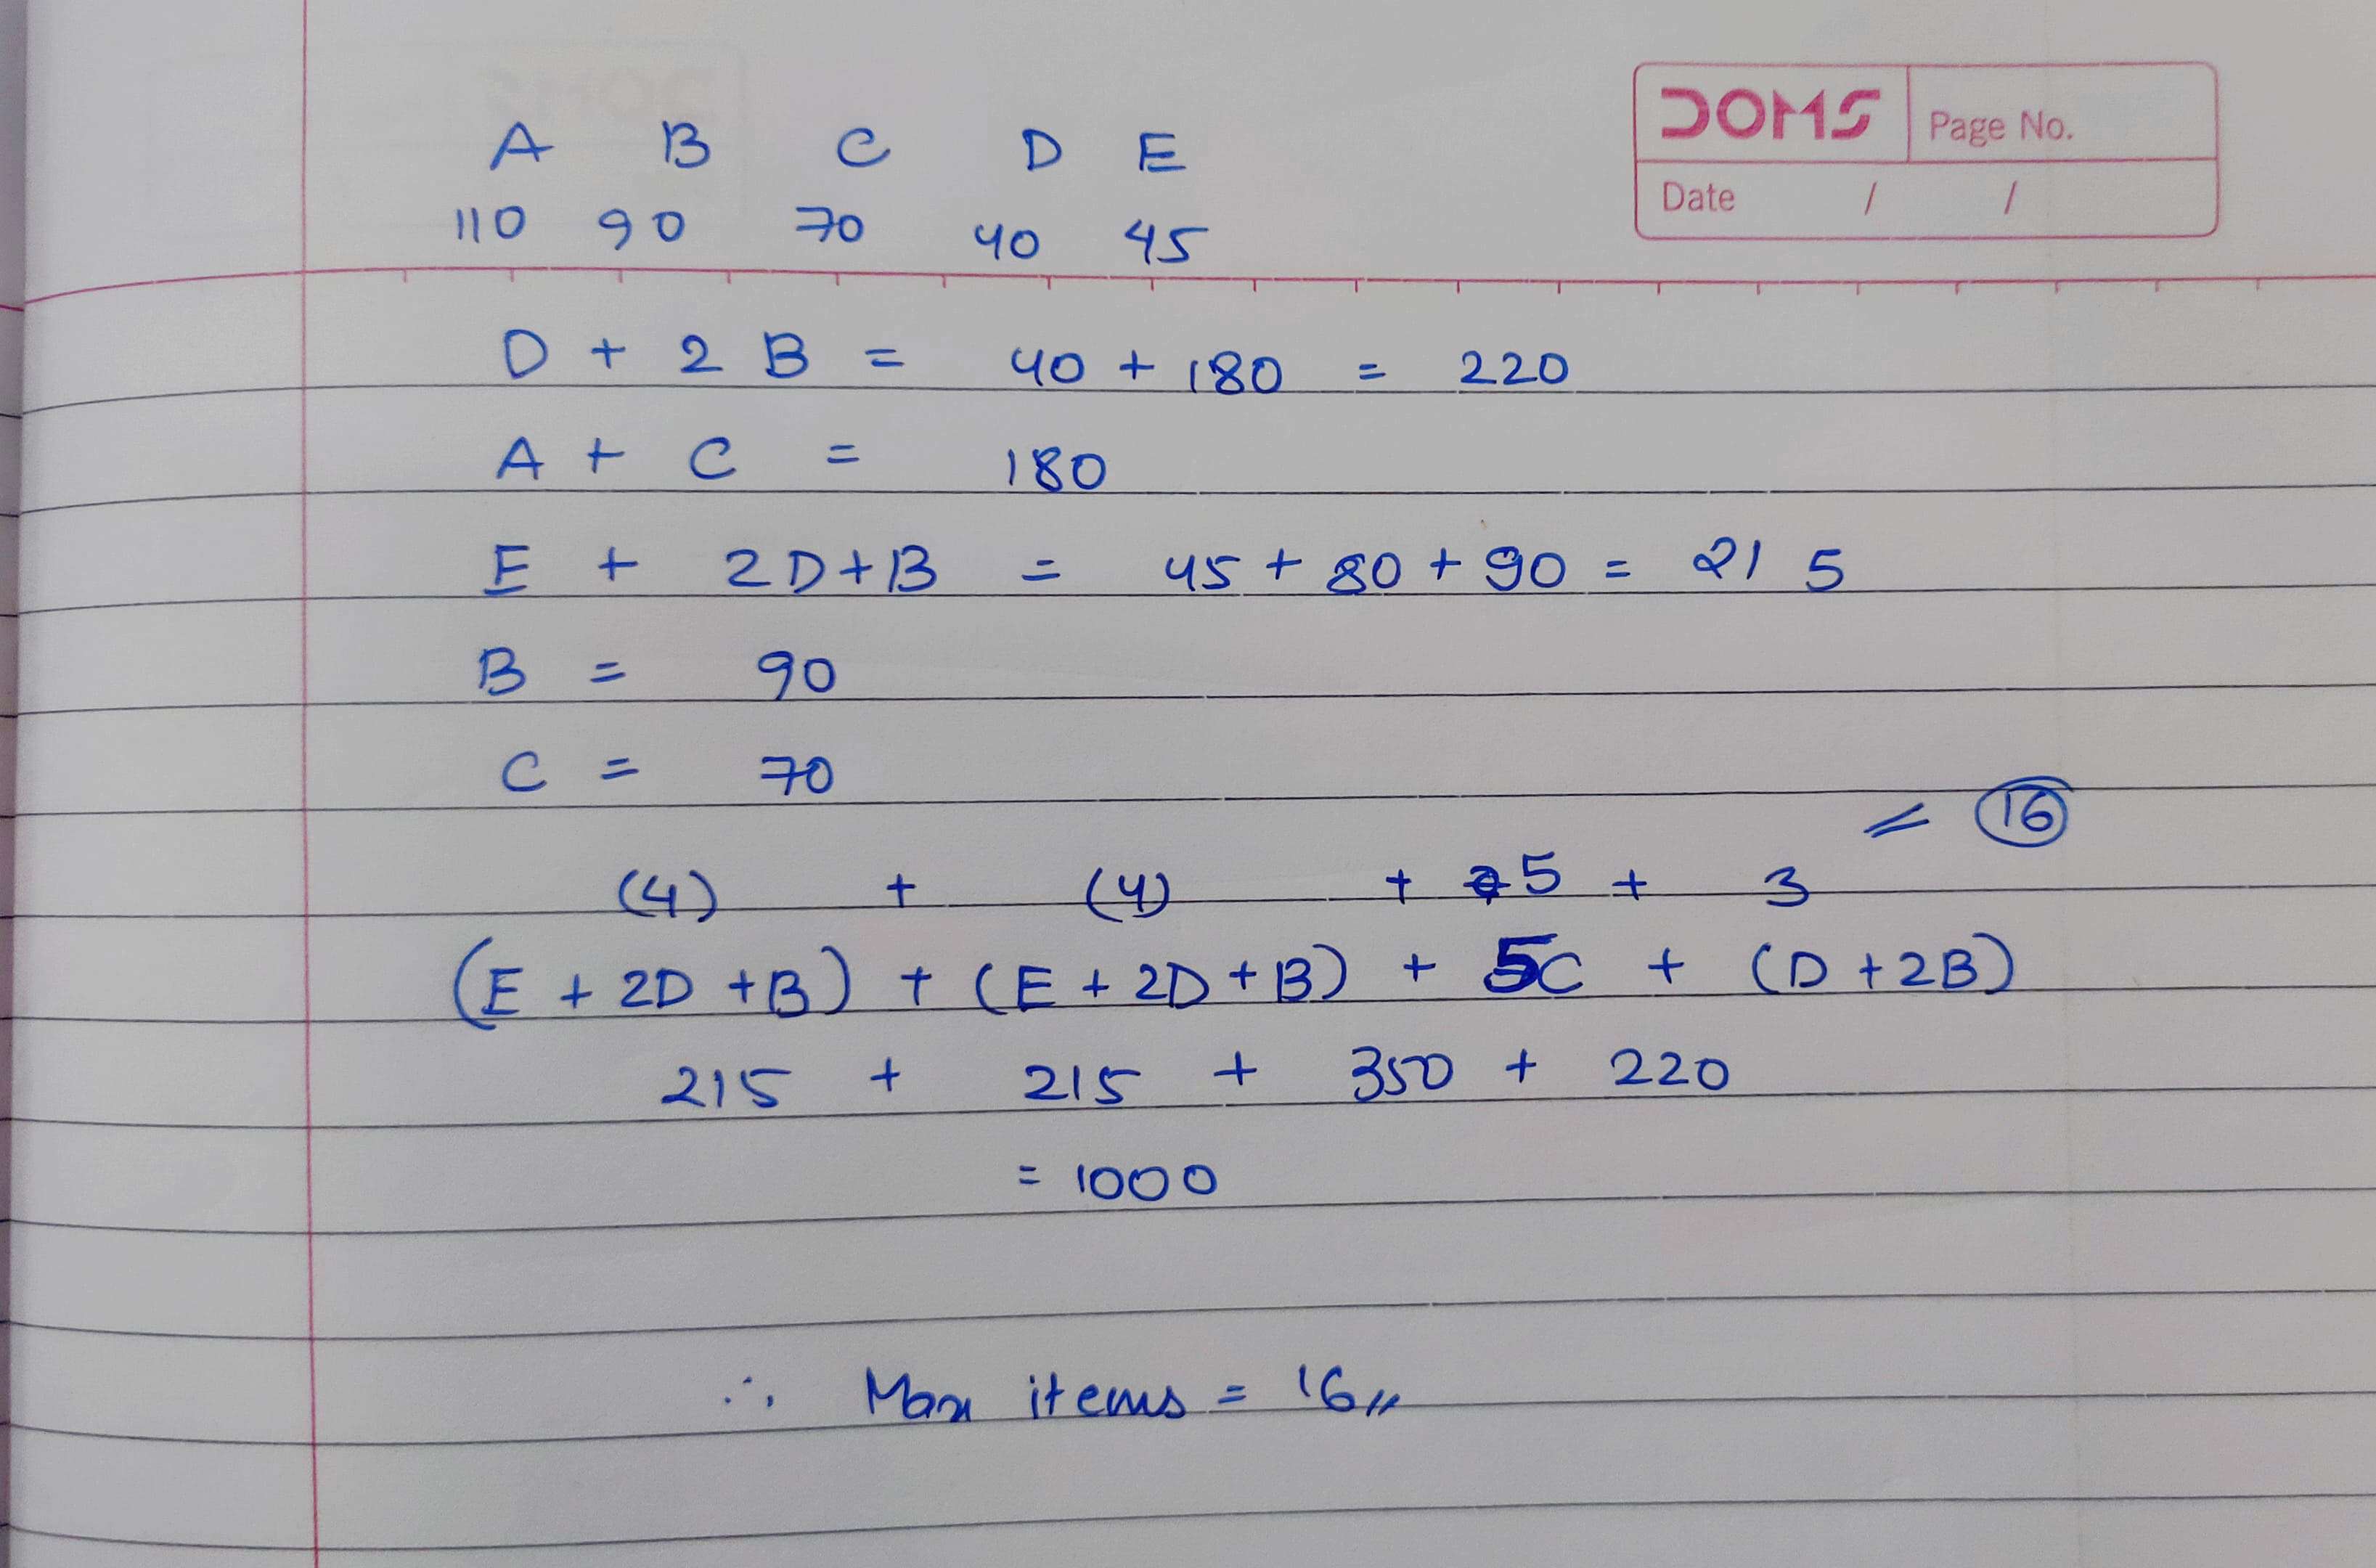 DOMS Page No.
Date / /
A B C D E
110 90 70 40 45
D + 2 B = 40 + 180 = 220
A + C = 180
E + 2D+B = 45 + 80 + 90 = 215
B = 90
C = 70
= 16
(4) + (4) + 5 + 3
(E + 2D + B) + (E + 2D + B) + 5C + (D + 2B)
215 + 215 + 350 + 220
= 1000
∴ Max items = 16//